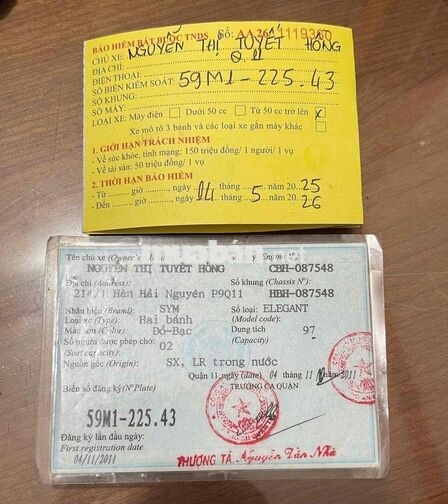 BẢO HIỂM BẮT BUỘC TNDS Số: AA 26 4119360
CHỦ XE: NGUYỄN THỊ TUYẾT HỒNG
ĐỊA CHỈ: Q 11
ĐIỆN THOẠI:
SỐ BIỂN KIỂM SOÁT: 59M1-225.43
SỐ KHUNG:
SỐ MÁY:
LOẠI XE: Máy điện Dưới 50 cc Từ 50 cc trở lên x
Xe mô tô 3 bánh và các loại xe gắn máy khác
1. GIỚI HẠN TRÁCH NHIỆM
- Về sức khỏe, tính mạng: 150 triệu đồng/ 1 người/ 1 vụ
- Về tài sản: 50 triệu đồng/ 1 vụ
2. THỜI HẠN BẢO HIỂM
- Từ giờ , ngày 04 tháng 5 năm 20 25
- Đến giờ , ngày tháng năm 20 26
Tên chủ xe (Owner's Engine N°):
NGUYỄN THỊ TUYẾT HỒNG CBH-087548
Địa chỉ (Address): Số khung (Chassis N°):
214/1 Hàn Hải Nguyên P9Q11 HBH-087548
Nhãn hiệu (Brand): SYM Số loại: ELEGANT
Loại xe (Type): Hai bánh (Model code):
Màu sơn (Color): Đỏ-Bạc Dung tích 97
Số người được phép chở: 02 (Capacity)
(Seat capacity):
Nguồn gốc (Origin): SX, LR trong nước
Quận 11, ngày (date) 04 11 2011
Biển số đăng ký(N°Plate) TRƯỞNG CA QUẬN
59M1-225.43
Đăng ký lần đầu ngày:
First registration date
04/11/2011
THƯỢNG TÁ. Nguyễn Tấn Nhã